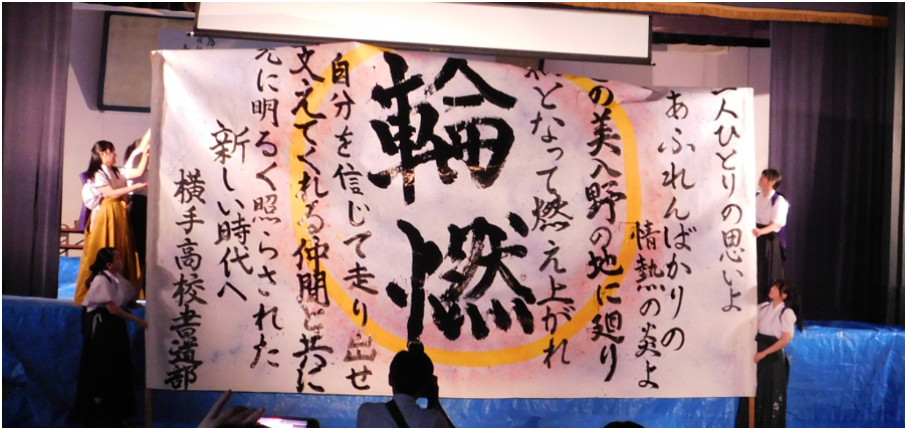 人ひとりの思いよ
あふれんばかりの
情熱の炎よ
の美入野の地に廻り
となって燃え上がれ
輪燃
自分を信じて走り出せ
支えてくれる仲間と共に
に明るく照らされた
新しい時代へ
横手高校書道部